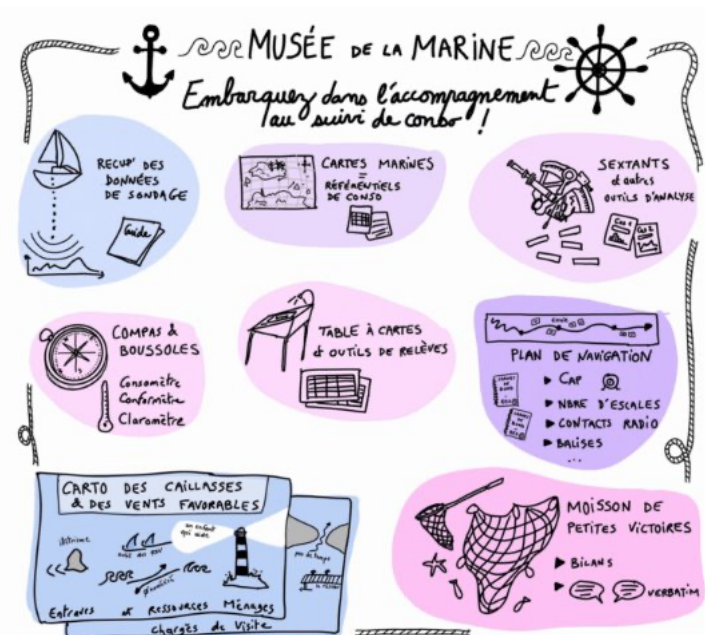 MUSÉE DE LA MARINE
Embarquez dans l'accompagnement
au suivi de conso !
RECUP' DES
DONNÉES
DE SONDAGE
Guide
CARTES MARINES
=
RÉFÉRENTIELS
DE CONSO
SEXTANTS
et autres
OUTILS D'ANALYSE
CAS 1
CAS 2
COMPAS &
BOUSSOLES
Consomètre
Conformètre
Claromètre
TABLE À CARTES
et OUTILS DE RELEVÉS
PLAN DE NAVIGATION
CAP
NBRE D'ESCALES
CONTACTS RADIO
BALISES
...
CARTO DES CAILLASSES
& DES VENTS FAVORABLES
un enfant
qui aide
pas de temps
Entraves et Ressources Ménages
Chargés de Visite
MOISSON DE
PETITES VICTOIRES
BILANS
VERBATIM